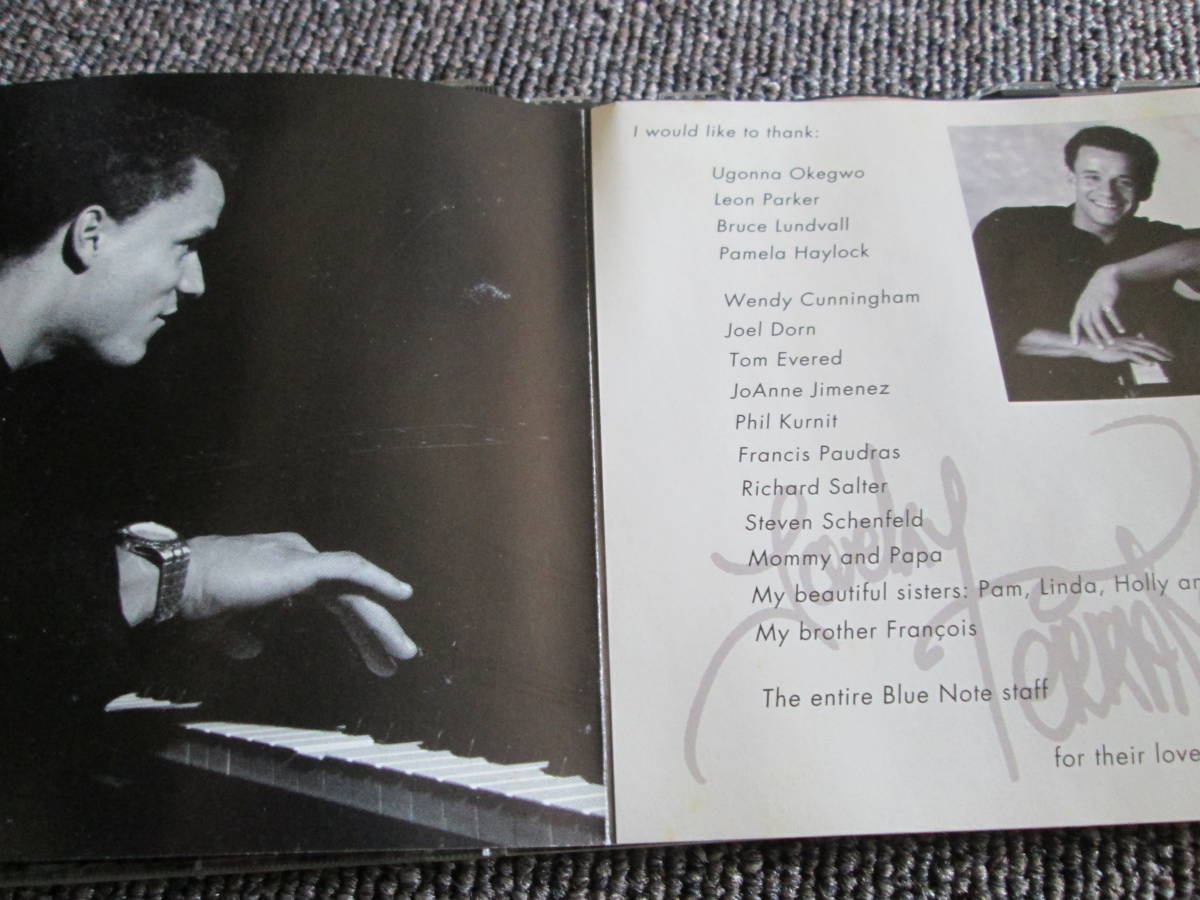 I would like to thank:
Ugonna Okegwo
Leon Parker
Bruce Lundvall
Pamela Haylock
Wendy Cunningham
Joel Dorn
Tom Evered
JoAnne Jimenez
Phil Kurnit
Francis Paudras
Richard Salter
Steven Schenfeld
Mommy and Papa
My beautiful sisters: Pam, Linda, Holly
My brother François
The entire Blue Note staff
for their love